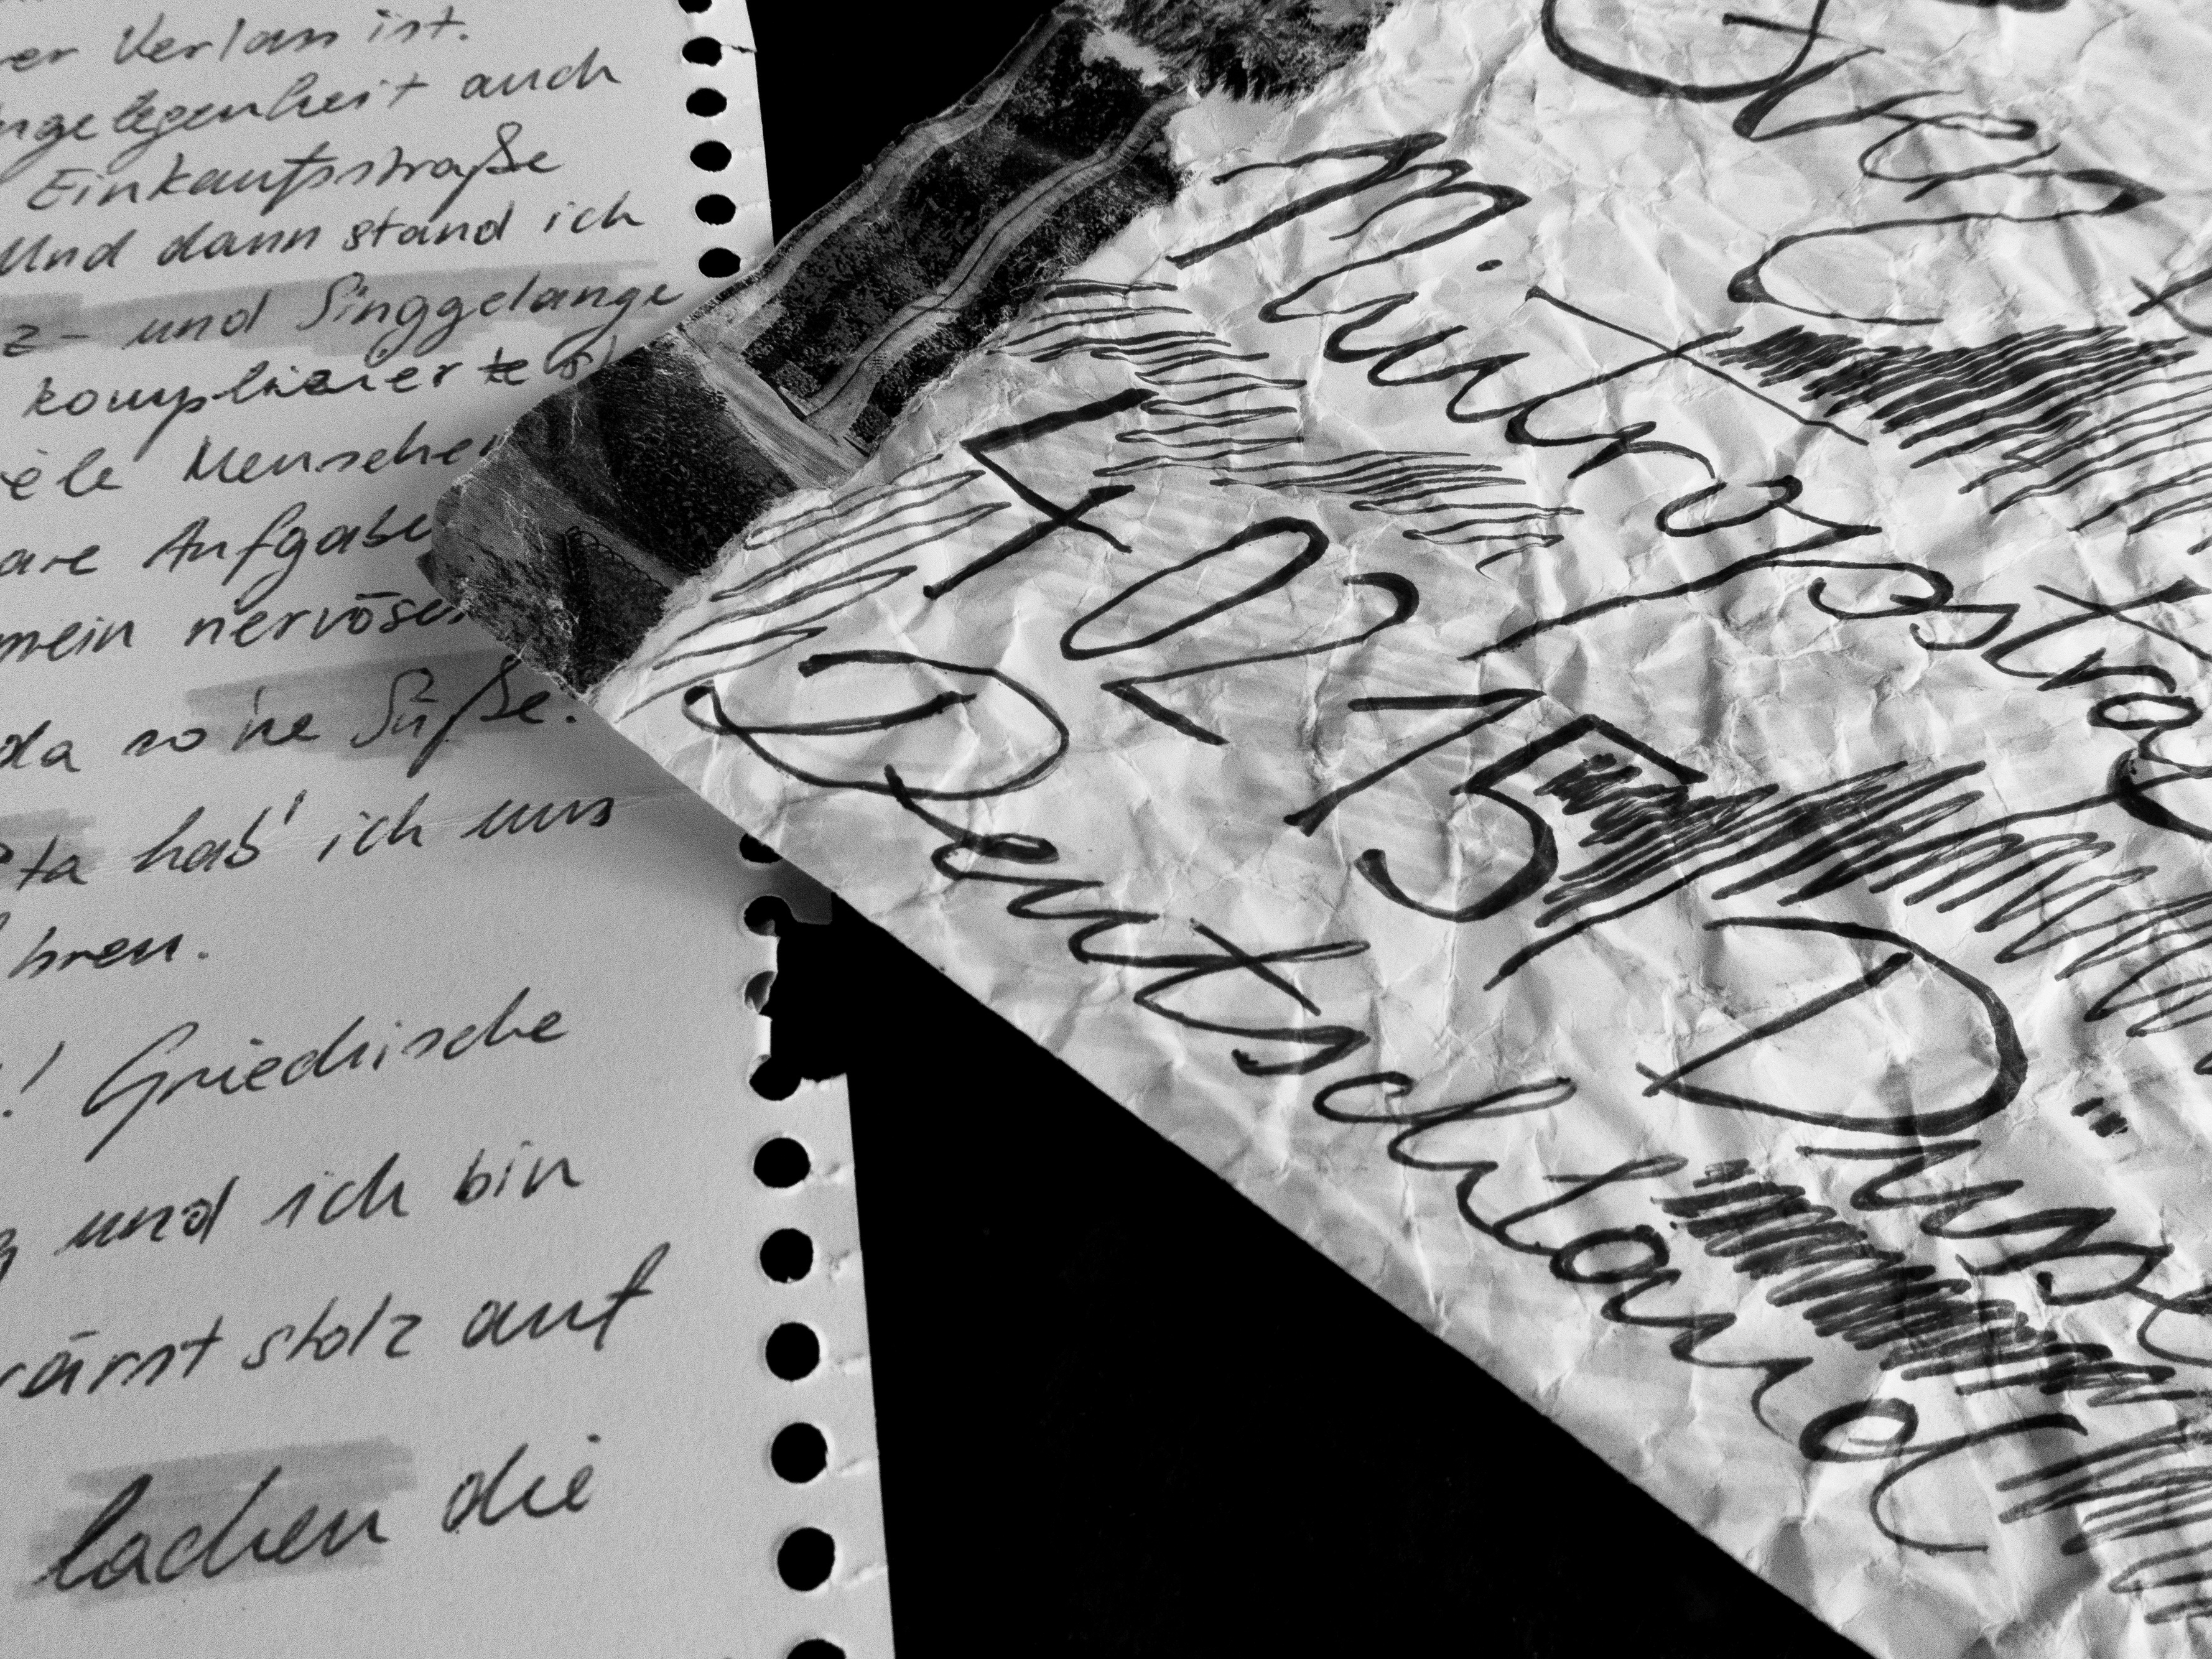 er Verlass ist.
ngelegenheit auch
Einkaufsstraße
Und dann stand ich
z- und Singgelange
komplizierte
iele Menschen
are Aufgabe
mein nervöses
da so 'ne Süße.
ta hab' ich uns
hren.
! Griechische
und ich bin
wärst stolz auf
lachen die
Sven
Mintropstraß
40215 Düsse
Deutschland